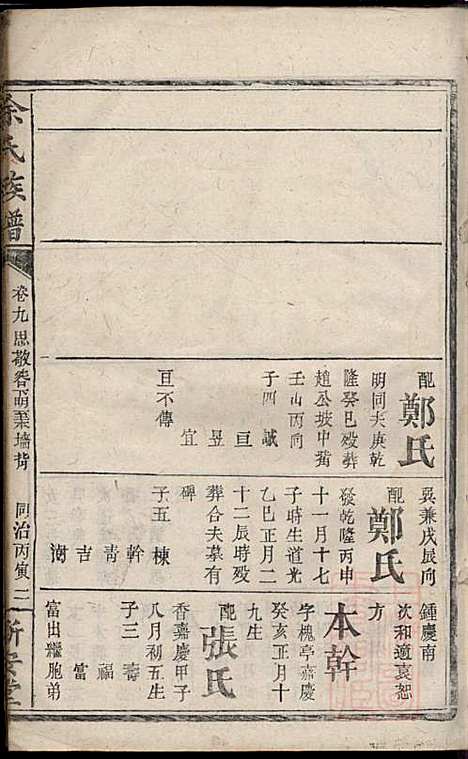 余氏族譜
卷九思敬眷萌業墻背
同治丙寅二
新安堂
配鄭氏
明同夫庚乾
隆癸巳歿葬
趙公坡中嶺
壬山丙向
子四 誠
亘
昱
宜
亘不傳
巽兼戊辰向
配鄭氏
發乾隆丙申
十一月十七
子時生道光
乙巳正月二
十二辰時歿
葬合夫墓有
碑
子五 棟
幹
青
吉
澍
鍾慶南
次和適袁恕
方
本幹
字槐亭嘉慶
癸亥正月十
九生
配張氏
香嘉慶甲子
八月初五生
子三 壽
福
富
富出繼胞弟